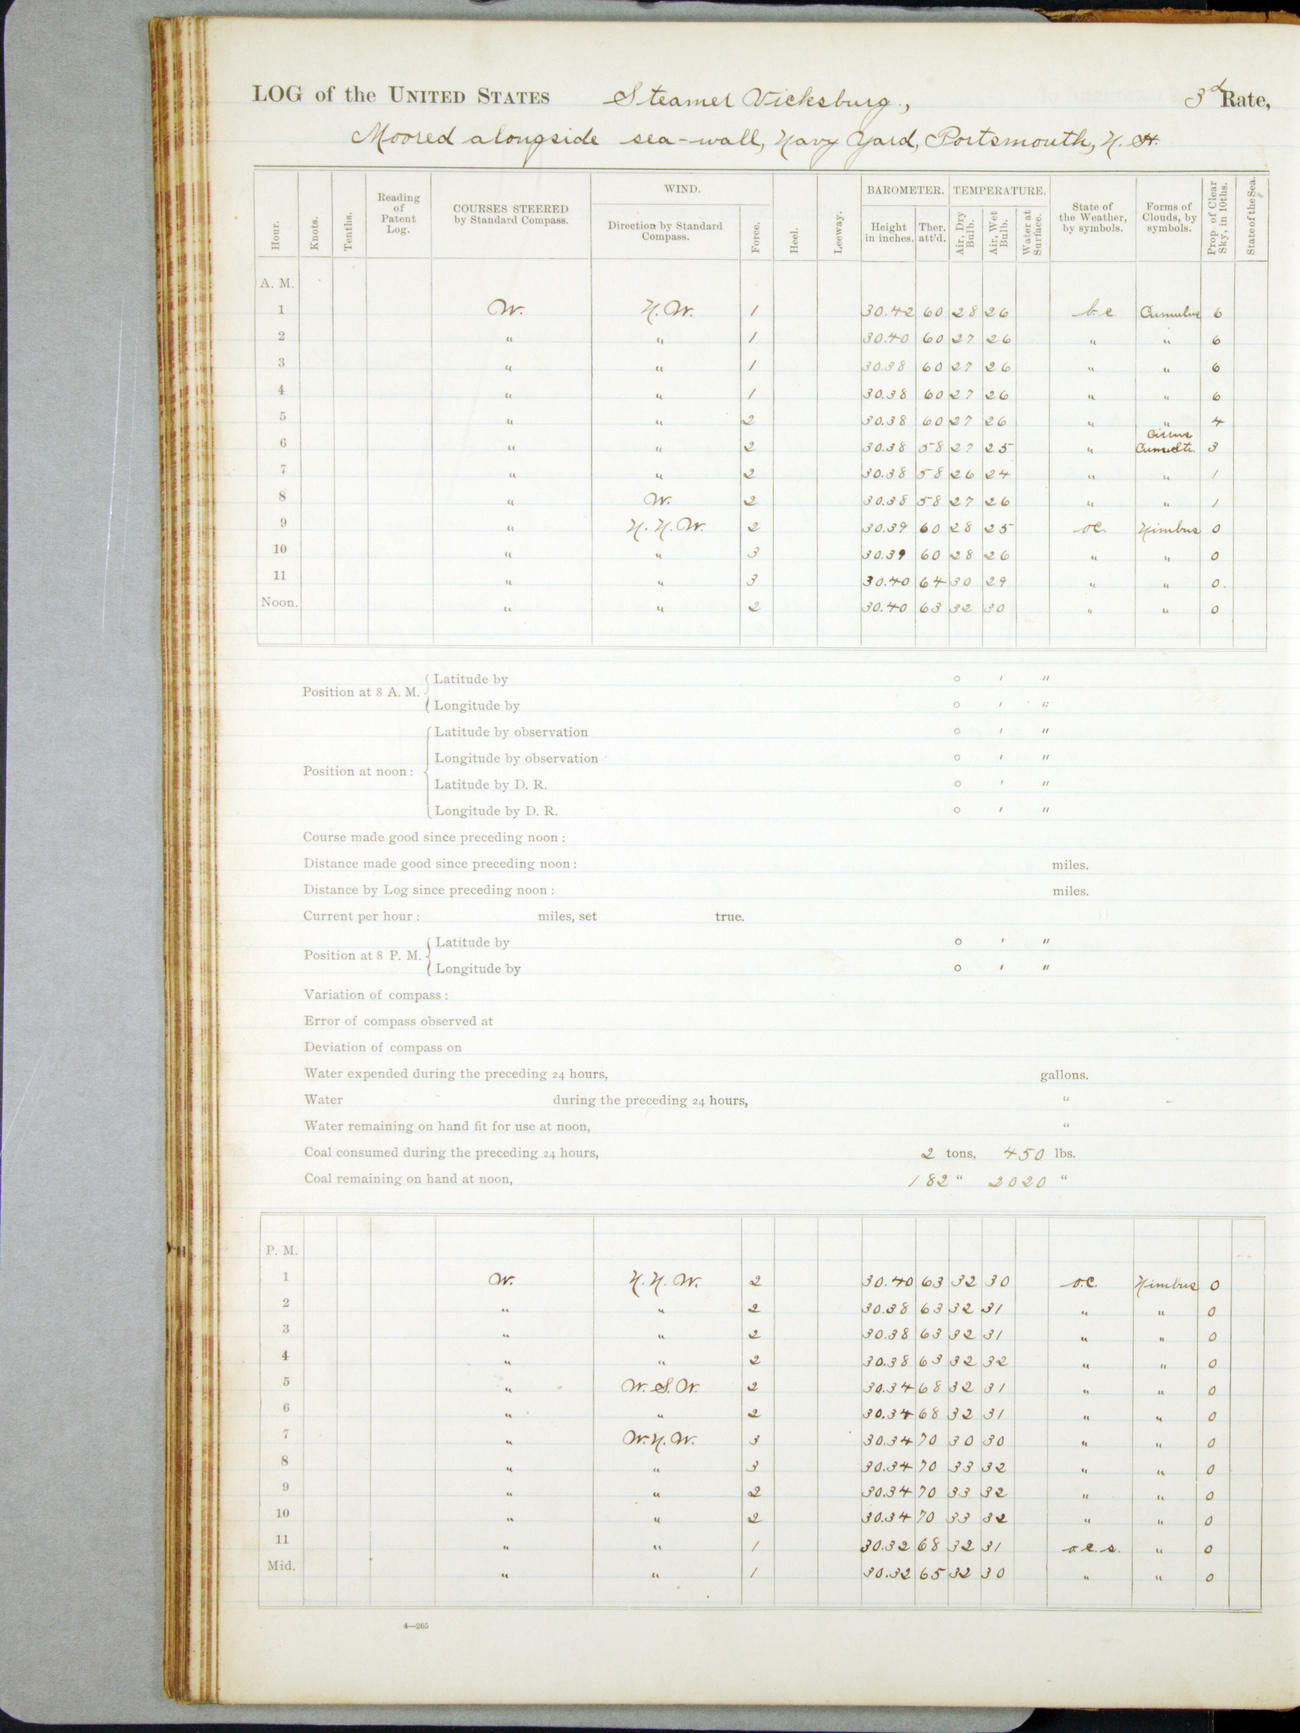 LOG of the UNITED STATES Steamer Vicksburg, 3d Rate,
Moored alongside sea-wall, Navy Yard, Portsmouth, N. H.
Hour. Knots. Tenths. Reading of Patent Log. COURSES STEERED by Standard Compass. WIND. Direction by Standard Compass. Force. Heel. Leeway. BAROMETER. Height in inches. Ther. att'd. TEMPERATURE. Air, Dry Bulb. Air, Wet Bulb. Water at Surface. State of the Weather, by symbols. Forms of Clouds, by symbols. Prop. of Clear Sky, in 10ths. State of the Sea.
A. M.
1 W. N. W. 1 30.42 60 28 26 b.c Cumulus 6
2 " " 1 30.40 60 27 26 " " 6
3 " " 1 30.38 60 27 26 " " 6
4 " " 1 30.38 60 27 26 " " 6
5 " " 2 30.38 60 27 26 " " 4
6 " " 2 30.38 58 27 25 " Cirrus 3
7 " " 2 30.38 58 26 24 " " 1
8 " W. 2 30.38 58 27 26 " " 1
9 " N. N. W. 2 30.39 60 28 25 oc. Nimbus 0
10 " " 3 30.39 60 28 26 " " 0
11 " " 3 30.40 64 30 29 " " 0.
Noon. " " 2 30.40 63 32 30 " " 0
Position at 8 A. M. Latitude by ° ' "
Longitude by ° ' "
Latitude by observation ° ' "
Longitude by observation ° ' "
Position at noon:
Latitude by D. R. ° ' "
Longitude by D. R. ° ' "
Course made good since preceding noon:
Distance made good since preceding noon: miles.
Distance by Log since preceding noon: miles.
Current per hour: miles, set true.
Position at 8 P. M. Latitude by ° ' "
Longitude by ° ' "
Variation of compass:
Error of compass observed at
Deviation of compass on
Water expended during the preceding 24 hours, gallons.
Water during the preceding 24 hours, "
Water remaining on hand fit for use at noon, "
Coal consumed during the preceding 24 hours, 2 tons, 450 lbs.
Coal remaining on hand at noon, 182 " 2020 "
P. M.
1 W. N. N. W. 2 30.40 63 32 30 o.c. Nimbus 0
2 " " 2 30.38 63 32 31 " " 0
3 " " 2 30.38 63 32 31 " " 0
4 " " 2 30.38 63 32 32 " " 0
5 " W. S. W. 2 30.34 68 32 31 " " 0
6 " " 2 30.34 68 32 31 " " 0
7 " W. N. W. 3 30.34 70 30 30 " " 0
8 " " 3 30.34 70 33 32 " " 0
9 " " 2 30.34 70 33 32 " " 0
10 " " 2 30.34 70 33 32 " " 0
11 " " 1 30.32 68 32 31 o.c.s. " 0
Mid. " " 1 30.32 65 32 30 " " 0
4—265